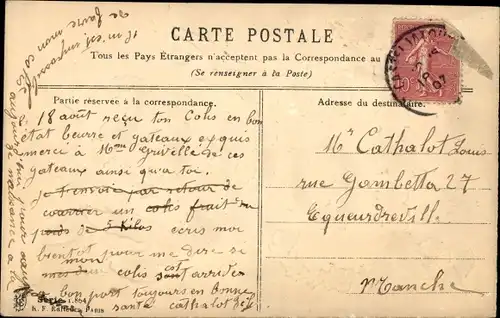 CARTE POSTALE
Tous les Pays Étrangers n'acceptent pas la Correspondance au
(Se renseigner à la Poste)
Partie réservée à la correspondance.
Adresse du destinataire.
18 août reçu ton Colis en bon
état beurre et gateaux exquis
merci à Mme Grivelle de ces
gateaux ainsi qu'a toi.
Je t'envoie par retour de
courrier un colis fruit du
poids de 5 kilos ecris moi
bientot pour me dire si
mes mon colis sont est arrivés
a bon port toujours en bonne
santé cathalot
Mr Cathalot Louis
rue Gambetta 27
Equeurdreville
Manche
il m'est impossible
de faire mon colis
aujourd'hui
Série 1.864
PARIS
07